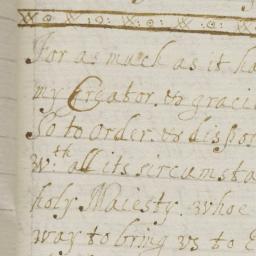 For as much as it ha
my Creator. & graci
so to order. & dispos
w.th all its sircumsta
holy Maiesty. whoe
way to bring vs to